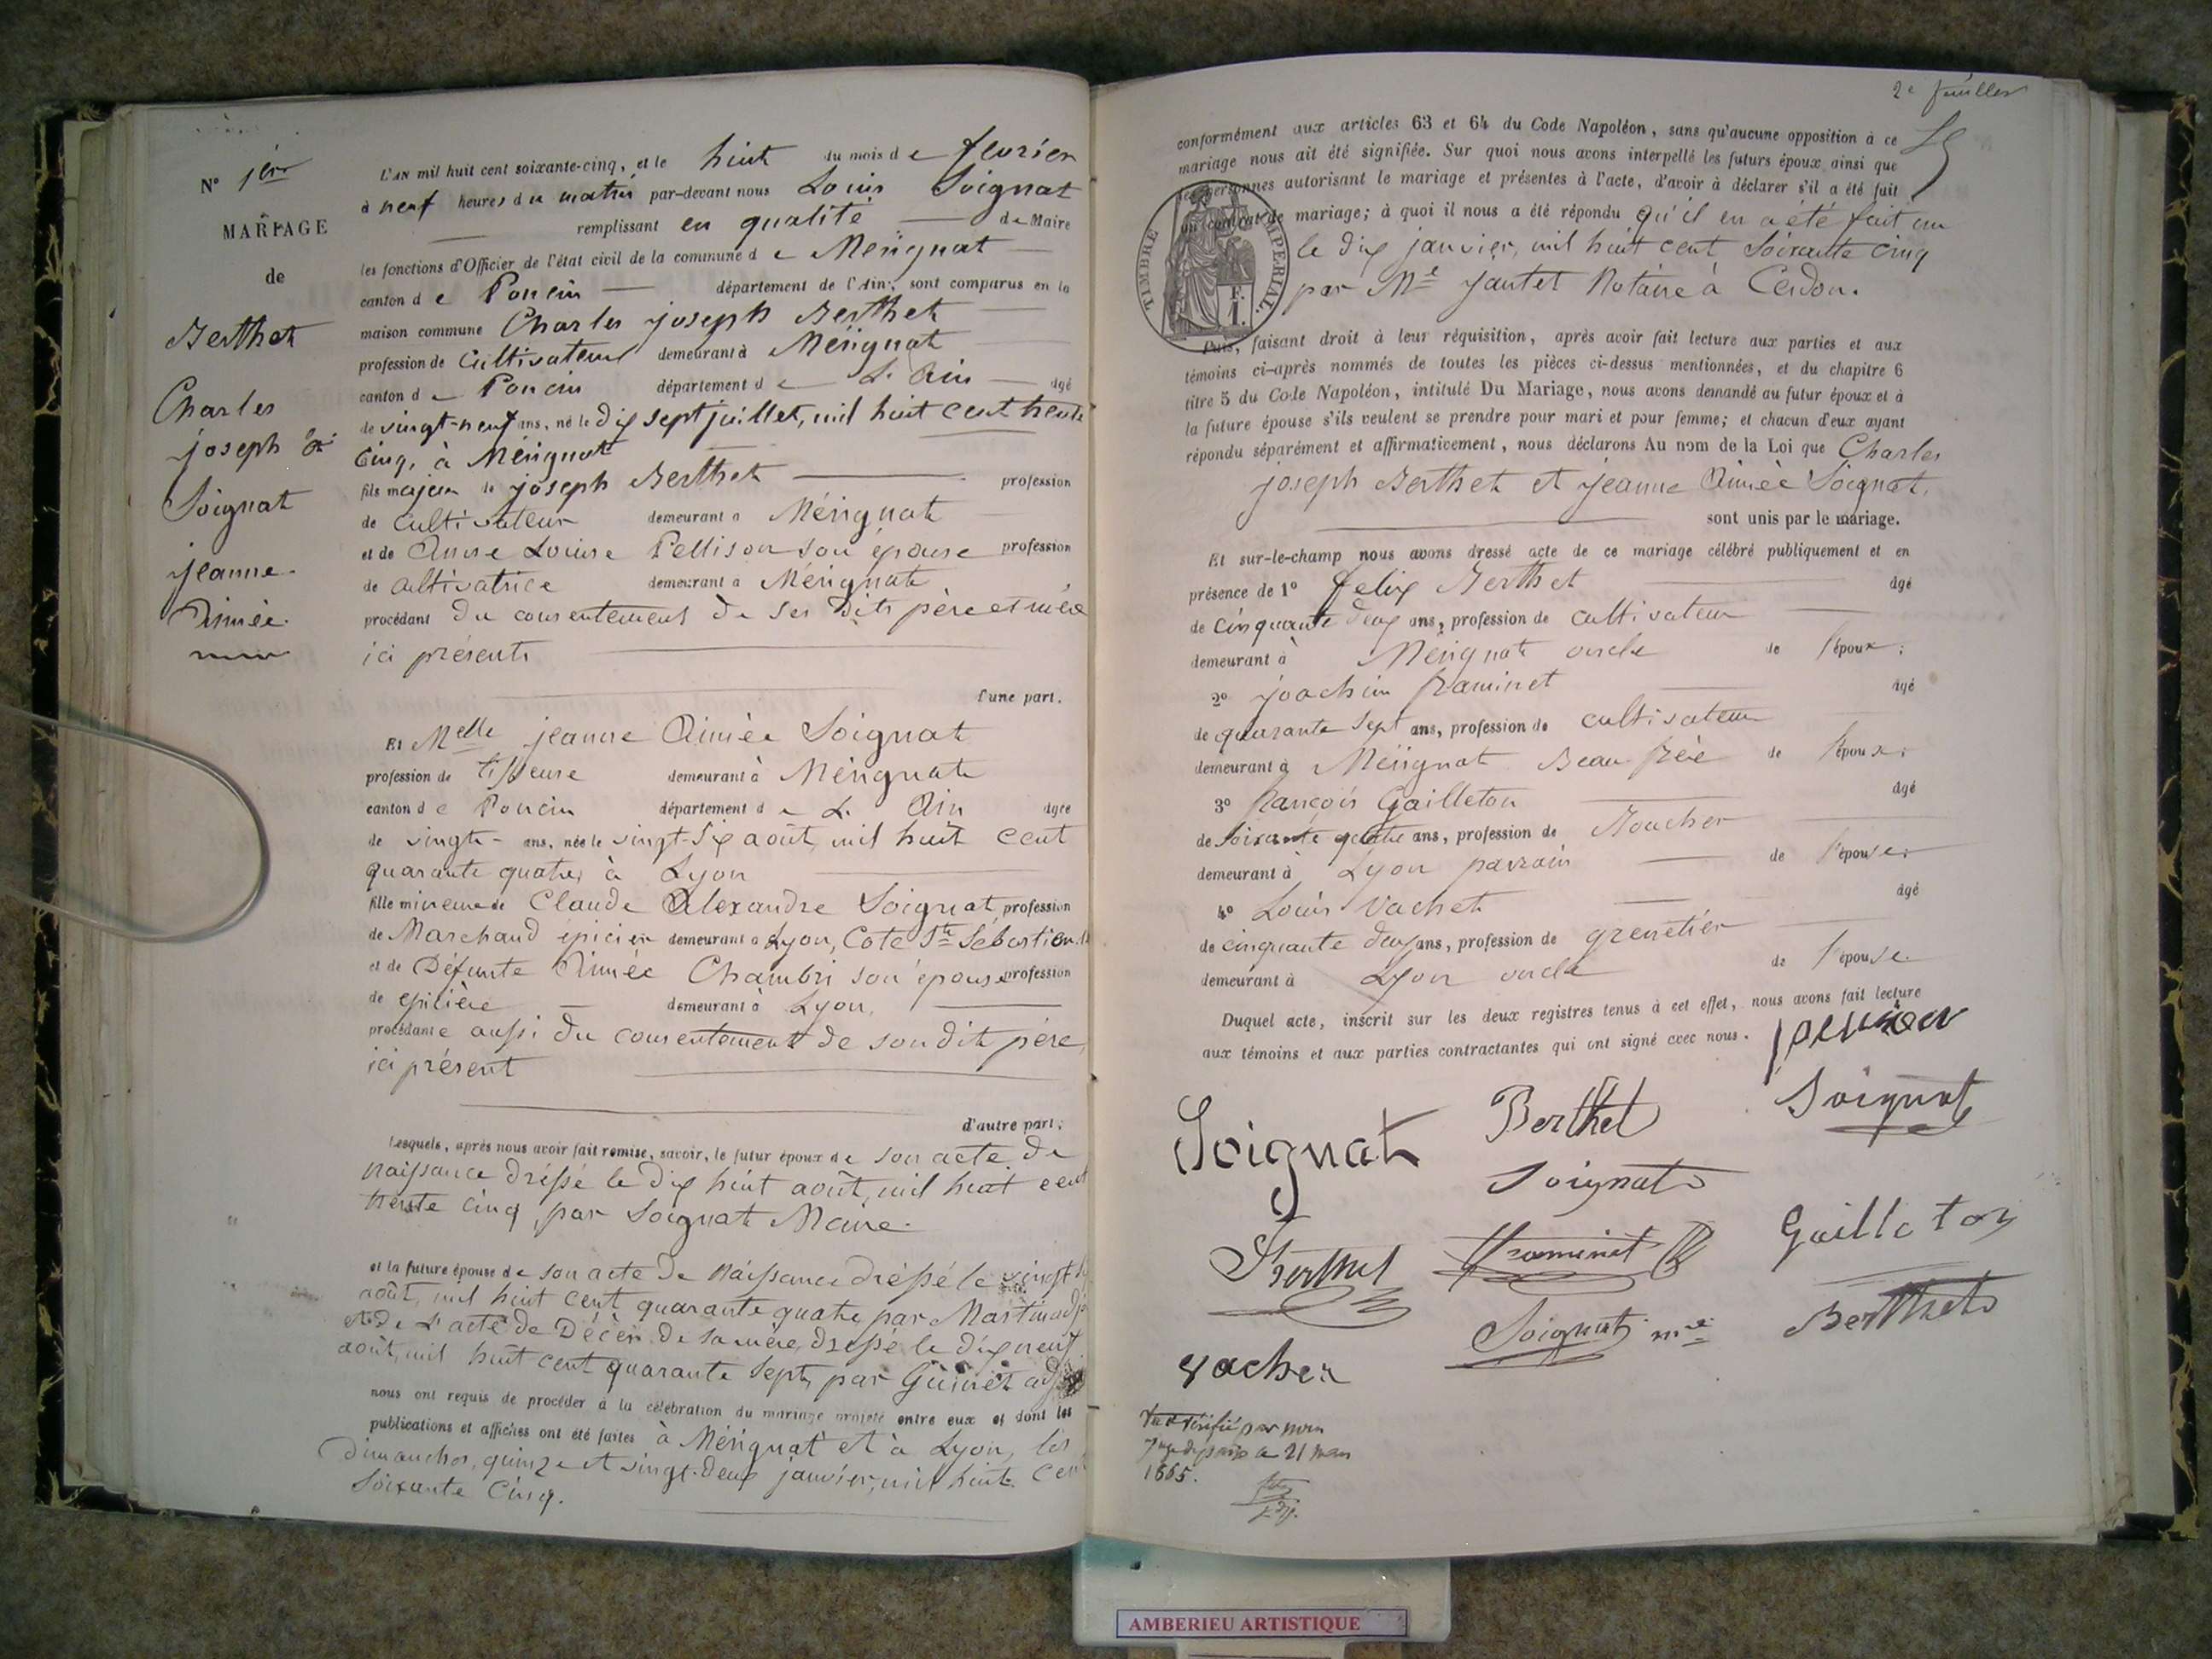 N° 1er
MARIAGE
de
Berthet
Charles
joseph &
Soignat
jeanne
Aimée
L'AN mil huit cent soixante-cinq, et le huit du mois de fevrier
à neuf heures du matin par-devant nous Louis Soignat
remplissant en qualité de Maire
les fonctions d'Officier de l'état civil de la commune de Mérignat
canton de Poncin département de l'Ain, sont comparus en la
maison commune Charles joseph Berthet
profession de Cultivateur demeurant à Mérignat
canton de Poncin département de L'Ain âgé
de vingt-neuf ans, né le dix sept juillet, mil huit cent trente
Cinq, à Mérignat
fils majeur de joseph Berthet profession
de Cultivateur demeurant à Mérignat
et de Anne Louise Pellison son épouse profession
de cultivatrice demeurant à Mérignat
procédant du consentement de ses dits père et mère
ici présents
l'une part.
Et Melle jeanne Aimée Soignat
profession de tisseuse demeurant à Mérignat
canton de Poncin département de L'Ain âgée
de vingt ans, née le vingt-six août, mil huit cent
quarante quatre, à Lyon
fille mineure de Claude Alexandre Soignat profession
de Marchand épicier demeurant à Lyon, Cote St Sébastien
et de Défunte Aimée Chambri son épouse profession
de epicière demeurant à Lyon,
procédante aussi du consentement de son dit père,
ici présent
d'autre part;
Lesquels, après nous avoir fait remise, savoir, le futur époux de son acte de
naissance dréssé le dix huit août, mil huit cent
trente cinq, par Soignat Maire.
et la future épouse de son acte de naissance dréssé le vingt
août, mil huit cent quarante quatre par Martin adj
et de L'acte de Décès de sa mère, dressé le dix neuf
août, mil huit cent quarante sept, par Guinet adj
nous ont requis de procéder à la célébration du mariage projeté entre eux et dont les
publications et affiches ont été faites à Mérignat et à Lyon, les
dimanches, quinze et vingt-deux janvier, mil huit cent
soixante Cinq.
2e feuillet
conformément aux articles 63 et 64 du Code Napoléon, sans qu'aucune opposition à ce
mariage nous ait été signifiée. Sur quoi nous avons interpellé les futurs époux, ainsi que
les personnes autorisant le mariage et présentes à l'acte, d'avoir à déclarer s'il a été fait
un contrat de mariage; à quoi il nous a été répondu qu'il en a été fait un
le dix janvier, mil huit cent soixante cinq
par Me jantet Notaire à Cerdon.
TIMBRE IMPÉRIAL
F.
1.
Puis, faisant droit à leur réquisition, après avoir fait lecture aux parties et aux
témoins ci-après nommés de toutes les pièces ci-dessus mentionnées, et du chapitre 6
titre 5 du Code Napoléon, intitulé Du Mariage, nous avons demandé au futur époux et à
la future épouse s'ils veulent se prendre pour mari et pour femme; et chacun d'eux ayant
répondu séparément et affirmativement, nous déclarons Au nom de la Loi que Charles
joseph Berthet et jeanne Aimée Soignat,
sont unis par le mariage.
Et sur-le-champ nous avons dressé acte de ce mariage célébré publiquement et en
présence de 1° felix Berthet âgé
de cinquante deux ans, profession de cultivateur
demeurant à Mérignat oncle de l'époux;
2° joachim framinet âgé
de quarante sept ans, profession de cultivateur
demeurant à Mérignat Beau frère de l'époux;
3° françois Gailleton âgé
de soixante quatre ans, profession de Boucher
demeurant à Lyon parrain de l'épouse;
4° Louis Vachet âgé
de cinquante deux ans, profession de grenetier
demeurant à Lyon oncle de l'épouse.
Duquel acte, inscrit sur les deux registres tenus à cet effet, nous avons fait lecture
aux témoins et aux parties contractantes qui ont signé avec nous.
Soignat Berthet Soignat
Soignat
Berthet framinet Gailleton
Soignat mre Berthet
vacher
Vu et vérifié par nous
juge de paix ce 21 mars
1865.
AMBERIEU ARTISTIQUE